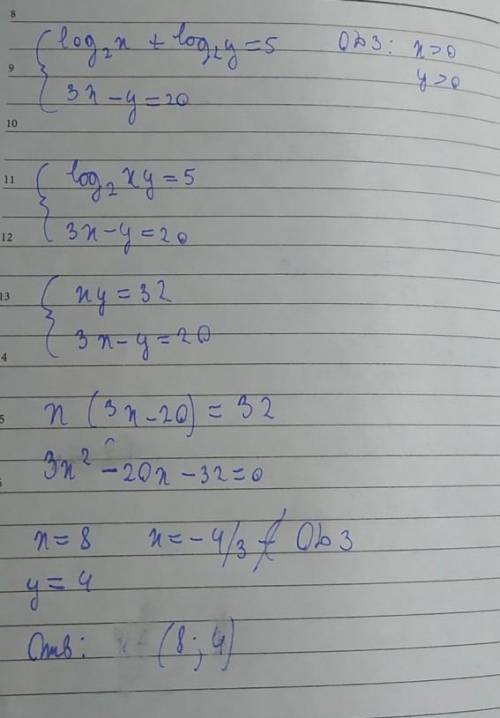 8
log₂x + log₂y = 5 ОДЗ: x>0
9
3x - y = 20 y>0
10
11
log₂xy = 5
12
3x - y = 20
13
xy = 32
3x - y = 20
4
5
x (3x - 20) = 32
3x² - 20x - 32 = 0
x = 8 x = - 4/3 ∉ ОДЗ
y = 4
Отв: (8; 4)